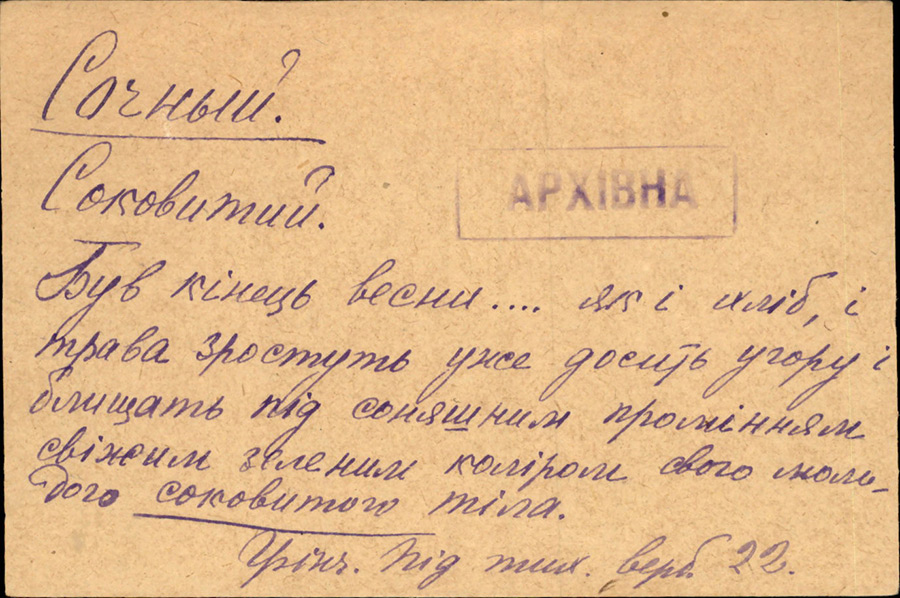 Сочный.
Соковитий.
АРХІВНА
Був кінець весни.... як і хліб, і
трава зростуть уже досить угору і
блищать під соняшним промінням
свіжим зеленим коліром свого моло-
дого соковитого тіла.
Грінч. Під тих. верб. 22.